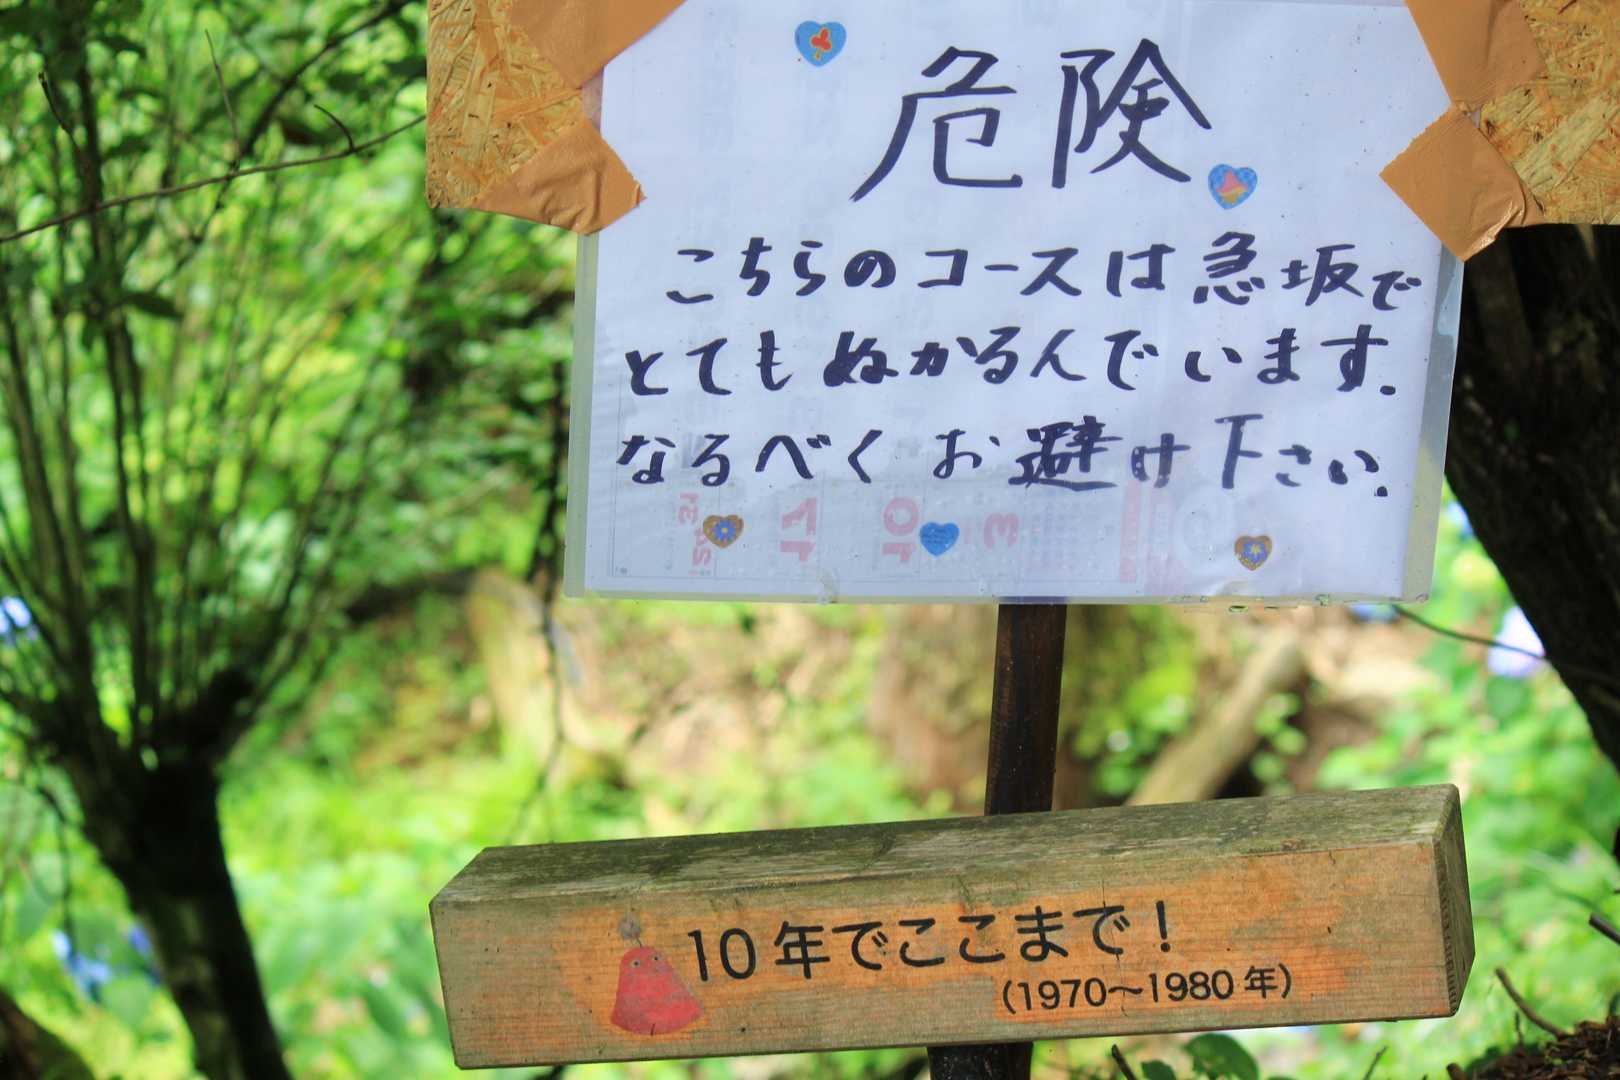 危険
こちらのコースは急坂で
とてもぬかるんでいます.
なるべくお避け下さい.
10年でここまで！
(1970～1980年)